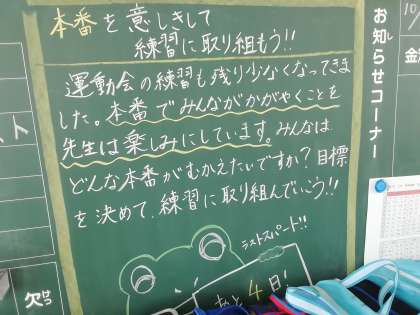 本番を意しきして
練習に取り組もう!!
運動会の練習も残り少なくなってきま
した。本番でみんながかがやくことを
先生は楽しみにしています。みんなは
どんな本番がむかえたいですか?目標
を決めて、練習に取り組んでいこう!!
ラストスパート!!
あと4日!
お知らせコーナー
10
金
スト
欠